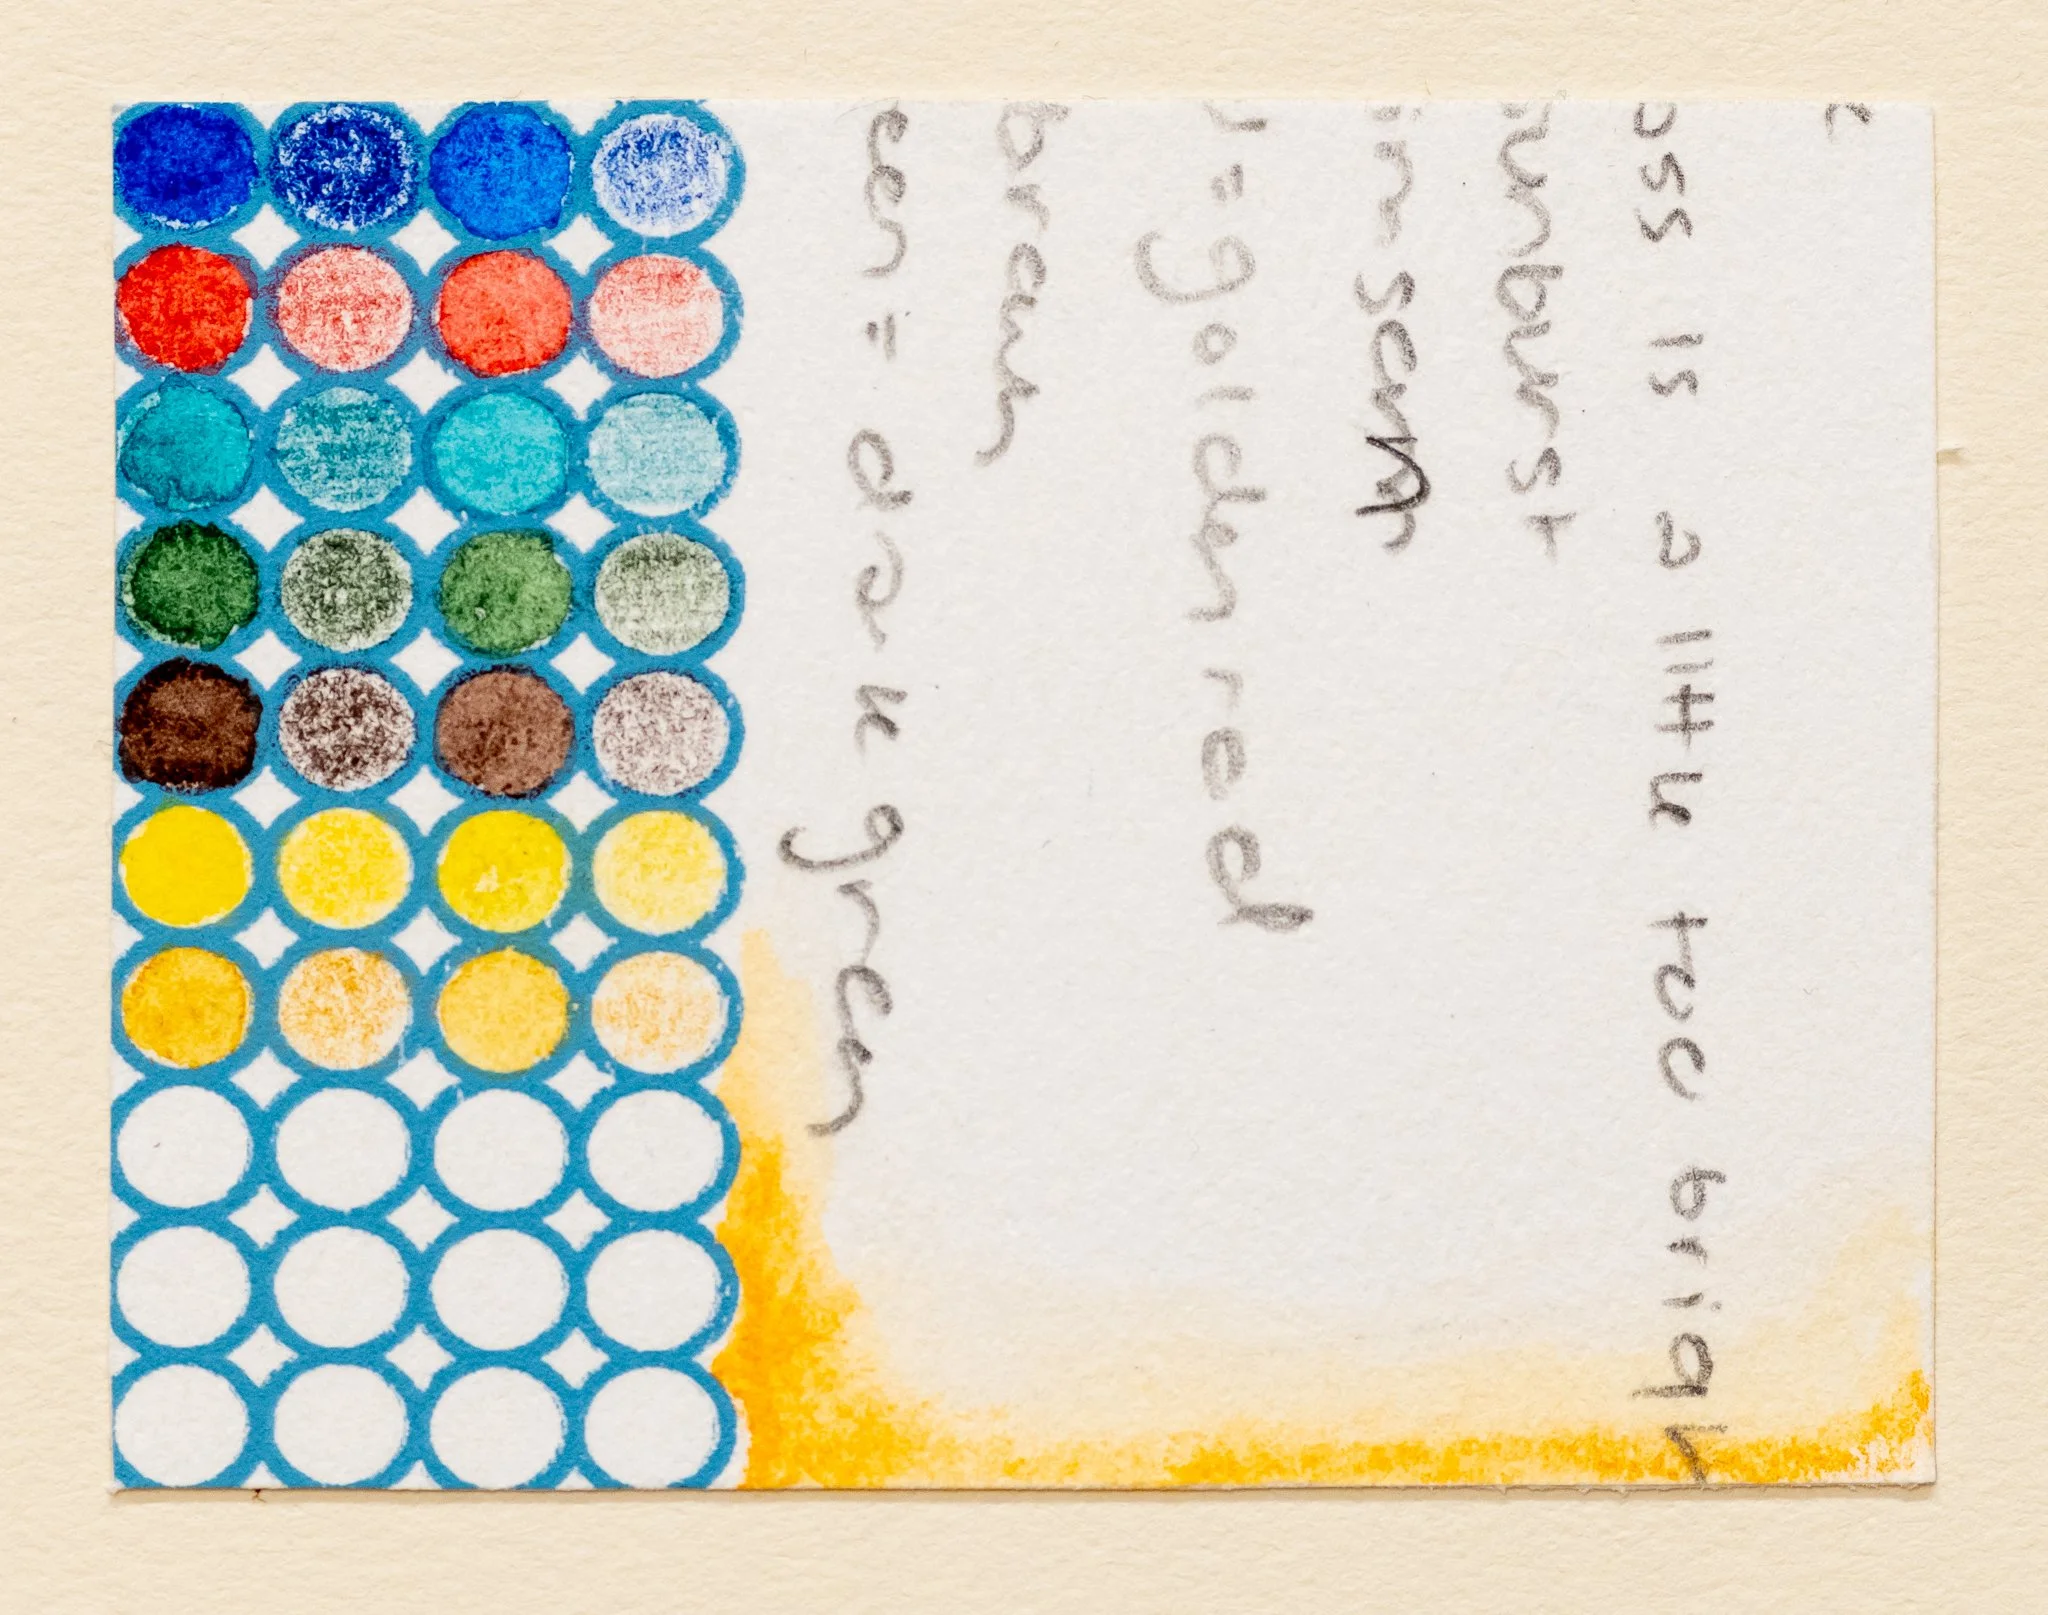 oss is a little too brigh
unburst
in scan
= golden red
brown
een = dark green